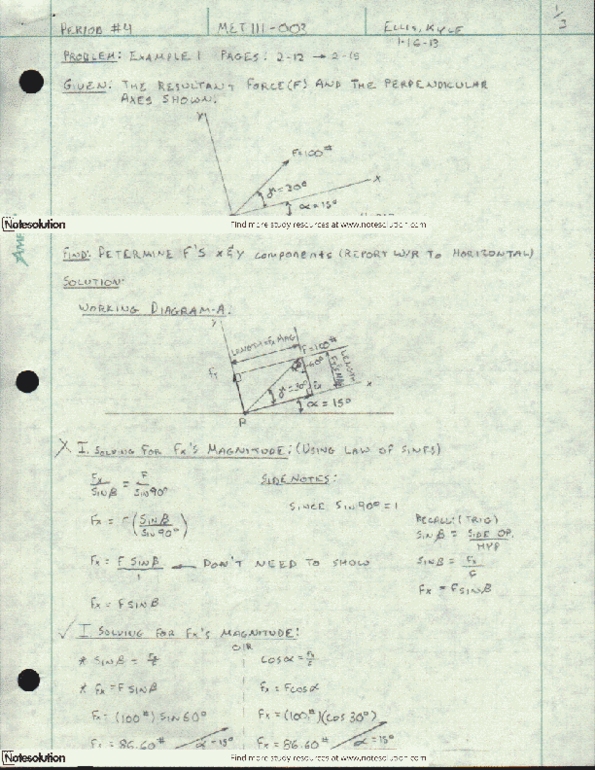 PERIOD #4 MET 111-003 ELLIS, KYLE 1/3
1-16-13
PROBLEM: EXAMPLE 1 PAGES: 2-12 → 2-15
GIVEN: THE RESULTANT FORCE(F) AND THE PERPENDICULAR
AXES SHOWN.
Y
F=100#
X
α=15°
Notesolution Find more study resources at www.notesolution.com
FIND: DETERMINE F'S X & Y COMPONENTS (REPORT W/R TO HORIZONTAL)
SOLUTION:
WORKING DIAGRAM-A:
Y
F=100#
LENGTH
60°
X
α=15°
X I. SOLVING FOR Fx'S MAGNITUDE: (USING LAW OF SINES)
Fx/SINβ = F/SIN90°
SIDE NOTES:
SINCE SIN90°=1
Fx = F(SINβ/SIN90°)
RECALL: (TRIG)
SINβ = SIDE OP./HYP
Fx = F SINβ/1 ← DON'T NEED TO SHOW
SINβ = Fx/F
Fx = FSINβ
Fx = FSINβ
✓ I SOLVING FOR Fx'S MAGNITUDE:
OR
* SINβ = Fx/F COSα = Fx/F
* Fx = FSINβ Fx = FCOSα
Fx = (100#) SIN60° Fx = (100#)(COS 30°)
Fx = 86.60# α=15° Fx = 86.60# α=15°
Notesolution Find more study resources at www.notesolution.com